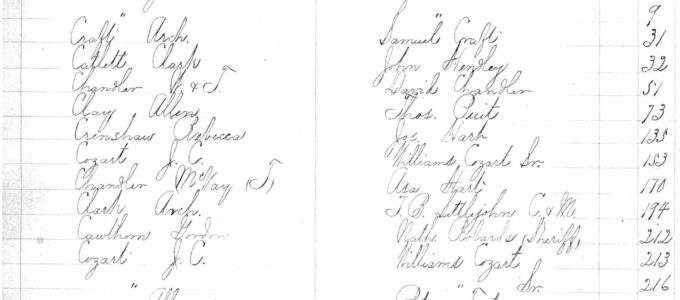 " 9
Craft Arch. Samuel Craft 31
Catlett Clark John Hendley 32
Chandler & T. David Chandler 51
Clay Allen Thos. 73
Crenshaw Rebecca Jos. 135
Cozart J. C. Williams Cozart Sr. 153
Chandler McVay (T) Asa Hart 170
Clark Arch. T. B. Littlejohn C. & M. 194
Cawthorn Gordon Nath. Robards (Sheriff) 212
Cozart J. C. Williams Cozart 213
" " Sr. 216